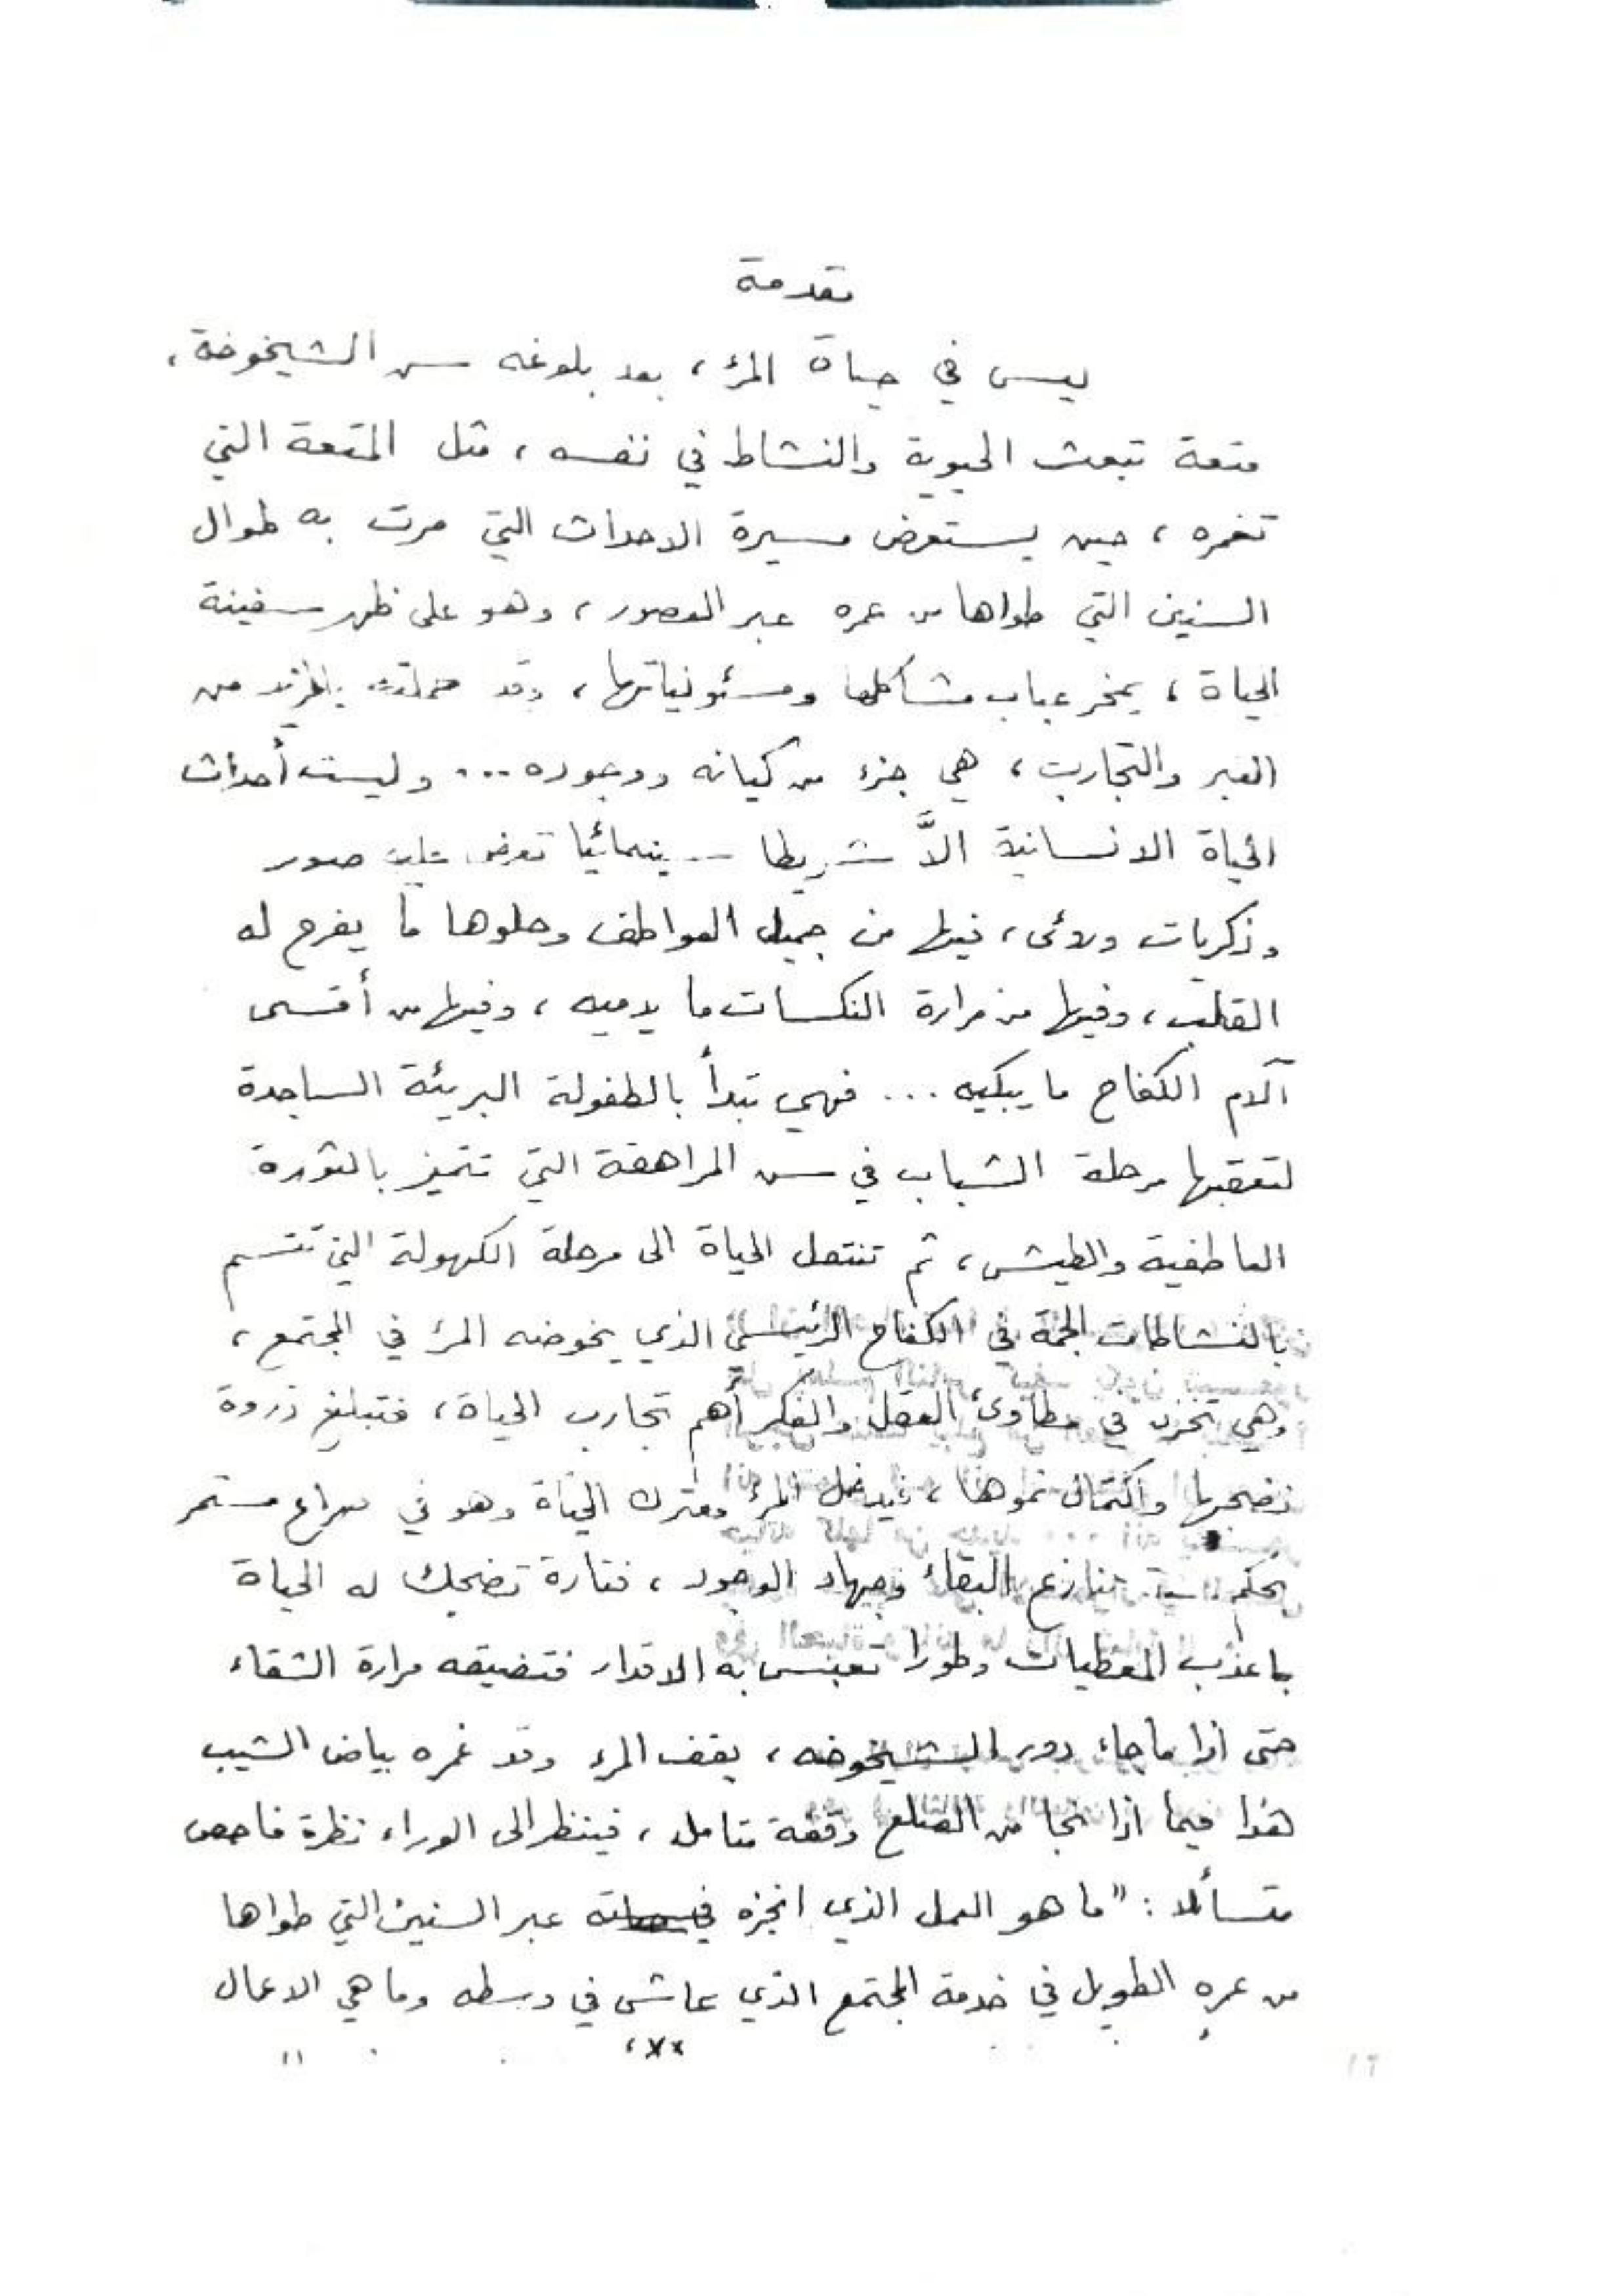 تقدمة
ليس في حياة المرٔ، بعد بلوغه سن الشيخوخة،
متعة تبعث الحيوية والنشاط في نفسه، مثل المتعة التي
تغمره، حين يستعرض مسيرة الاحداث التي مرت به طوال
السنين التي طواها من عمره عبر العصور، وهو على ظهر سفينة
الحياة، يمخر عباب مشاكلها ومسئولياتها، وقد حملته بالمزيد من
العبر والتجارب، هي جزء من كيانه ووجوده... وليست أحداث
الحياة الانسانية الاَّ شريطا سينمائيا تعرض عليه صور
وذكريات ورئى، فيها من جميل العواطف وحلوها ما يفرح له
القلب، وفيها من مرارة النكسات ما يدميه، وفيها من أقسى
آلام الكفاح ما يبكيه... فهي تبدأ بالطفولة البريئة الساجدة
لتعقبها مرحلة الشباب في سن المراهقة التي تتميز بالثورة
العاطفية والطيش، ثم تنتقل الحياة الى مرحلة الكهولة التي تتسم
بالنشاطات الجمة في الكفاح الرئيسى الذي يخوضه المرٔ في المجتمع،
وهي تخزن في مطاوئ العقل والفكر أهم تجارب الحياة، فتبلغ ذروة
نضجها واكتمال نموها، فيدخل المرٔ معترك الحياة وهو في صراع مستمر
بحكم سنة تنازع البقاء وجهاد الوجود، فتارة تضحك له الحياة
باعذب المعطيات وطورا تعبس به الاقدار فتضيقه مرارة الشقاء
حتى اذا ما جاء دور الشيخوخه، يقف المرء وقد غمره بياض الشيب
هذا فيما اذا نجا من الصلع وقفة متامل، فينظر الى الوراء نظرة فاحص
متسأئلا: "ما هو العمل الذي انجزه في حياته عبر السنين التي طواها
من عمره الطويل في خدمة المجتمع الذي عاش في وسطه وما هي الاعمال